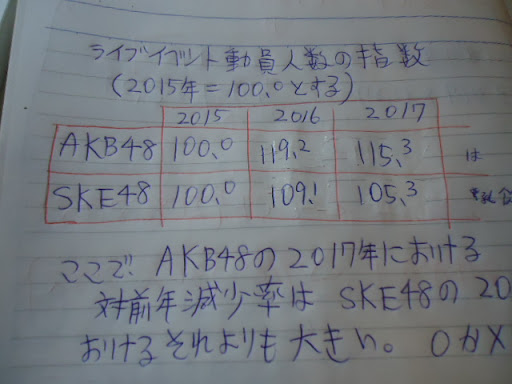 ライブイベント動員人数の指数
(2015年=100.0とする)
2015 2016 2017
AKB48 100.0 119.2 115.3
は
SKE48 100.0 109.1 105.3
ここで AKB48の2017年における
対前年減少率は SKE48の 20
おけるそれよりも 大きい。 0か×